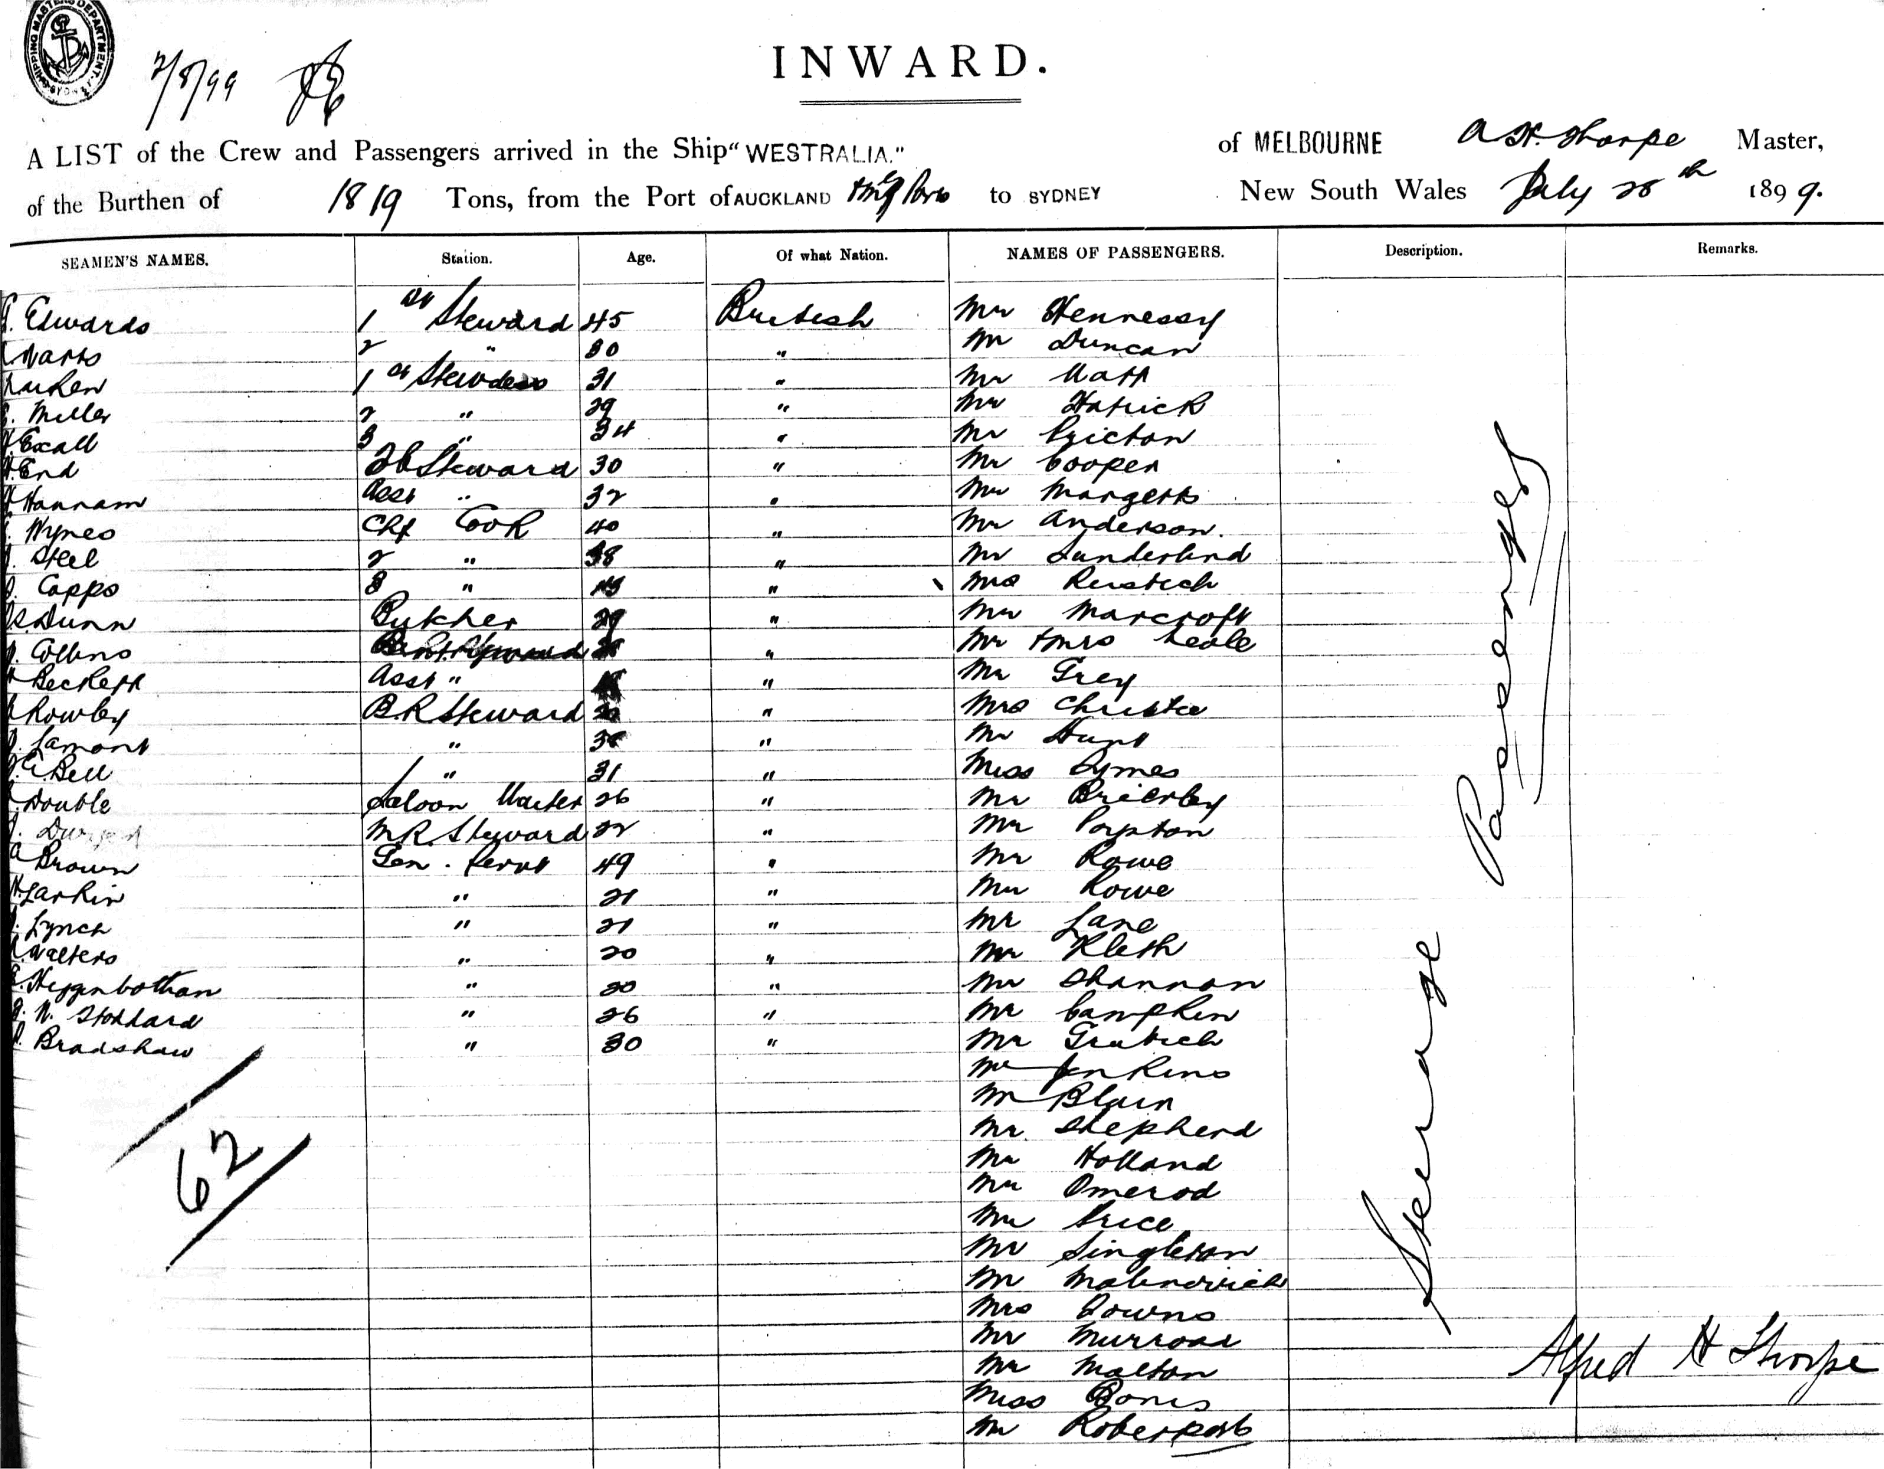 SHIPPING MASTERS DEPARTMENT
SYDNEY
2/8/99
INWARD.
A LIST of the Crew and Passengers arrived in the Ship "WESTRALIA." of MELBOURNE A H. Thorpe Master,
of the Burthen of 1819 Tons, from the Port of AUCKLAND to SYDNEY New South Wales July 28th 1899.
SEAMEN'S NAMES. Station. Age. Of what Nation. NAMES OF PASSENGERS. Description. Remarks.
Edwards 1st Steward 45 British Mr Hennessy
Watts 2 " 30 " Mr Duncan
1st Stewdess 31 " Mr Watt
Miller 2 " 29 " Mr Hatrick
Excall 3 " 34 " Mr
End Steward 30 " Mr Cooper
Hannam Asst " 32 " Mr Margetts
Wynes Chf Cook 40 " Mr Anderson.
Steel 2 " 38 " Mr Sunderland
Capps 3 " " Mrs
Dunn Butcher 29 " Mr Marcroft
Collins " Mr & Mrs Leale
Beckett Asst " " Mr Grey
Rowley B.R Steward " Mrs Christie
Lamont " " Mr Hunt
Bell " 31 " Miss Symes
Double Saloon Waiter 26 " Mr Brierley
M R. Steward 22 " Mr Poynton
Brown Gen. Servt 49 " Mr Rowe
Larkin " 21 " Mr Rowe
Lynch " 21 " Mr Lane
Walters " 20 " Mr Kleth
Higginbotham " 20 " Mr Shannon
W. Stoddard " 26 " Mr Campkin
Bradshaw " 30 " Mr
Mr Jenkins
Mr Blain
Mr Shepherd
Mr Holland
Mr Omerod
Mr Price
Mr Singleton
Mr
Mrs Downs
Mr
Mr Malton
Miss
Mr
62
Steerage Passengers
Alfred H Thorpe